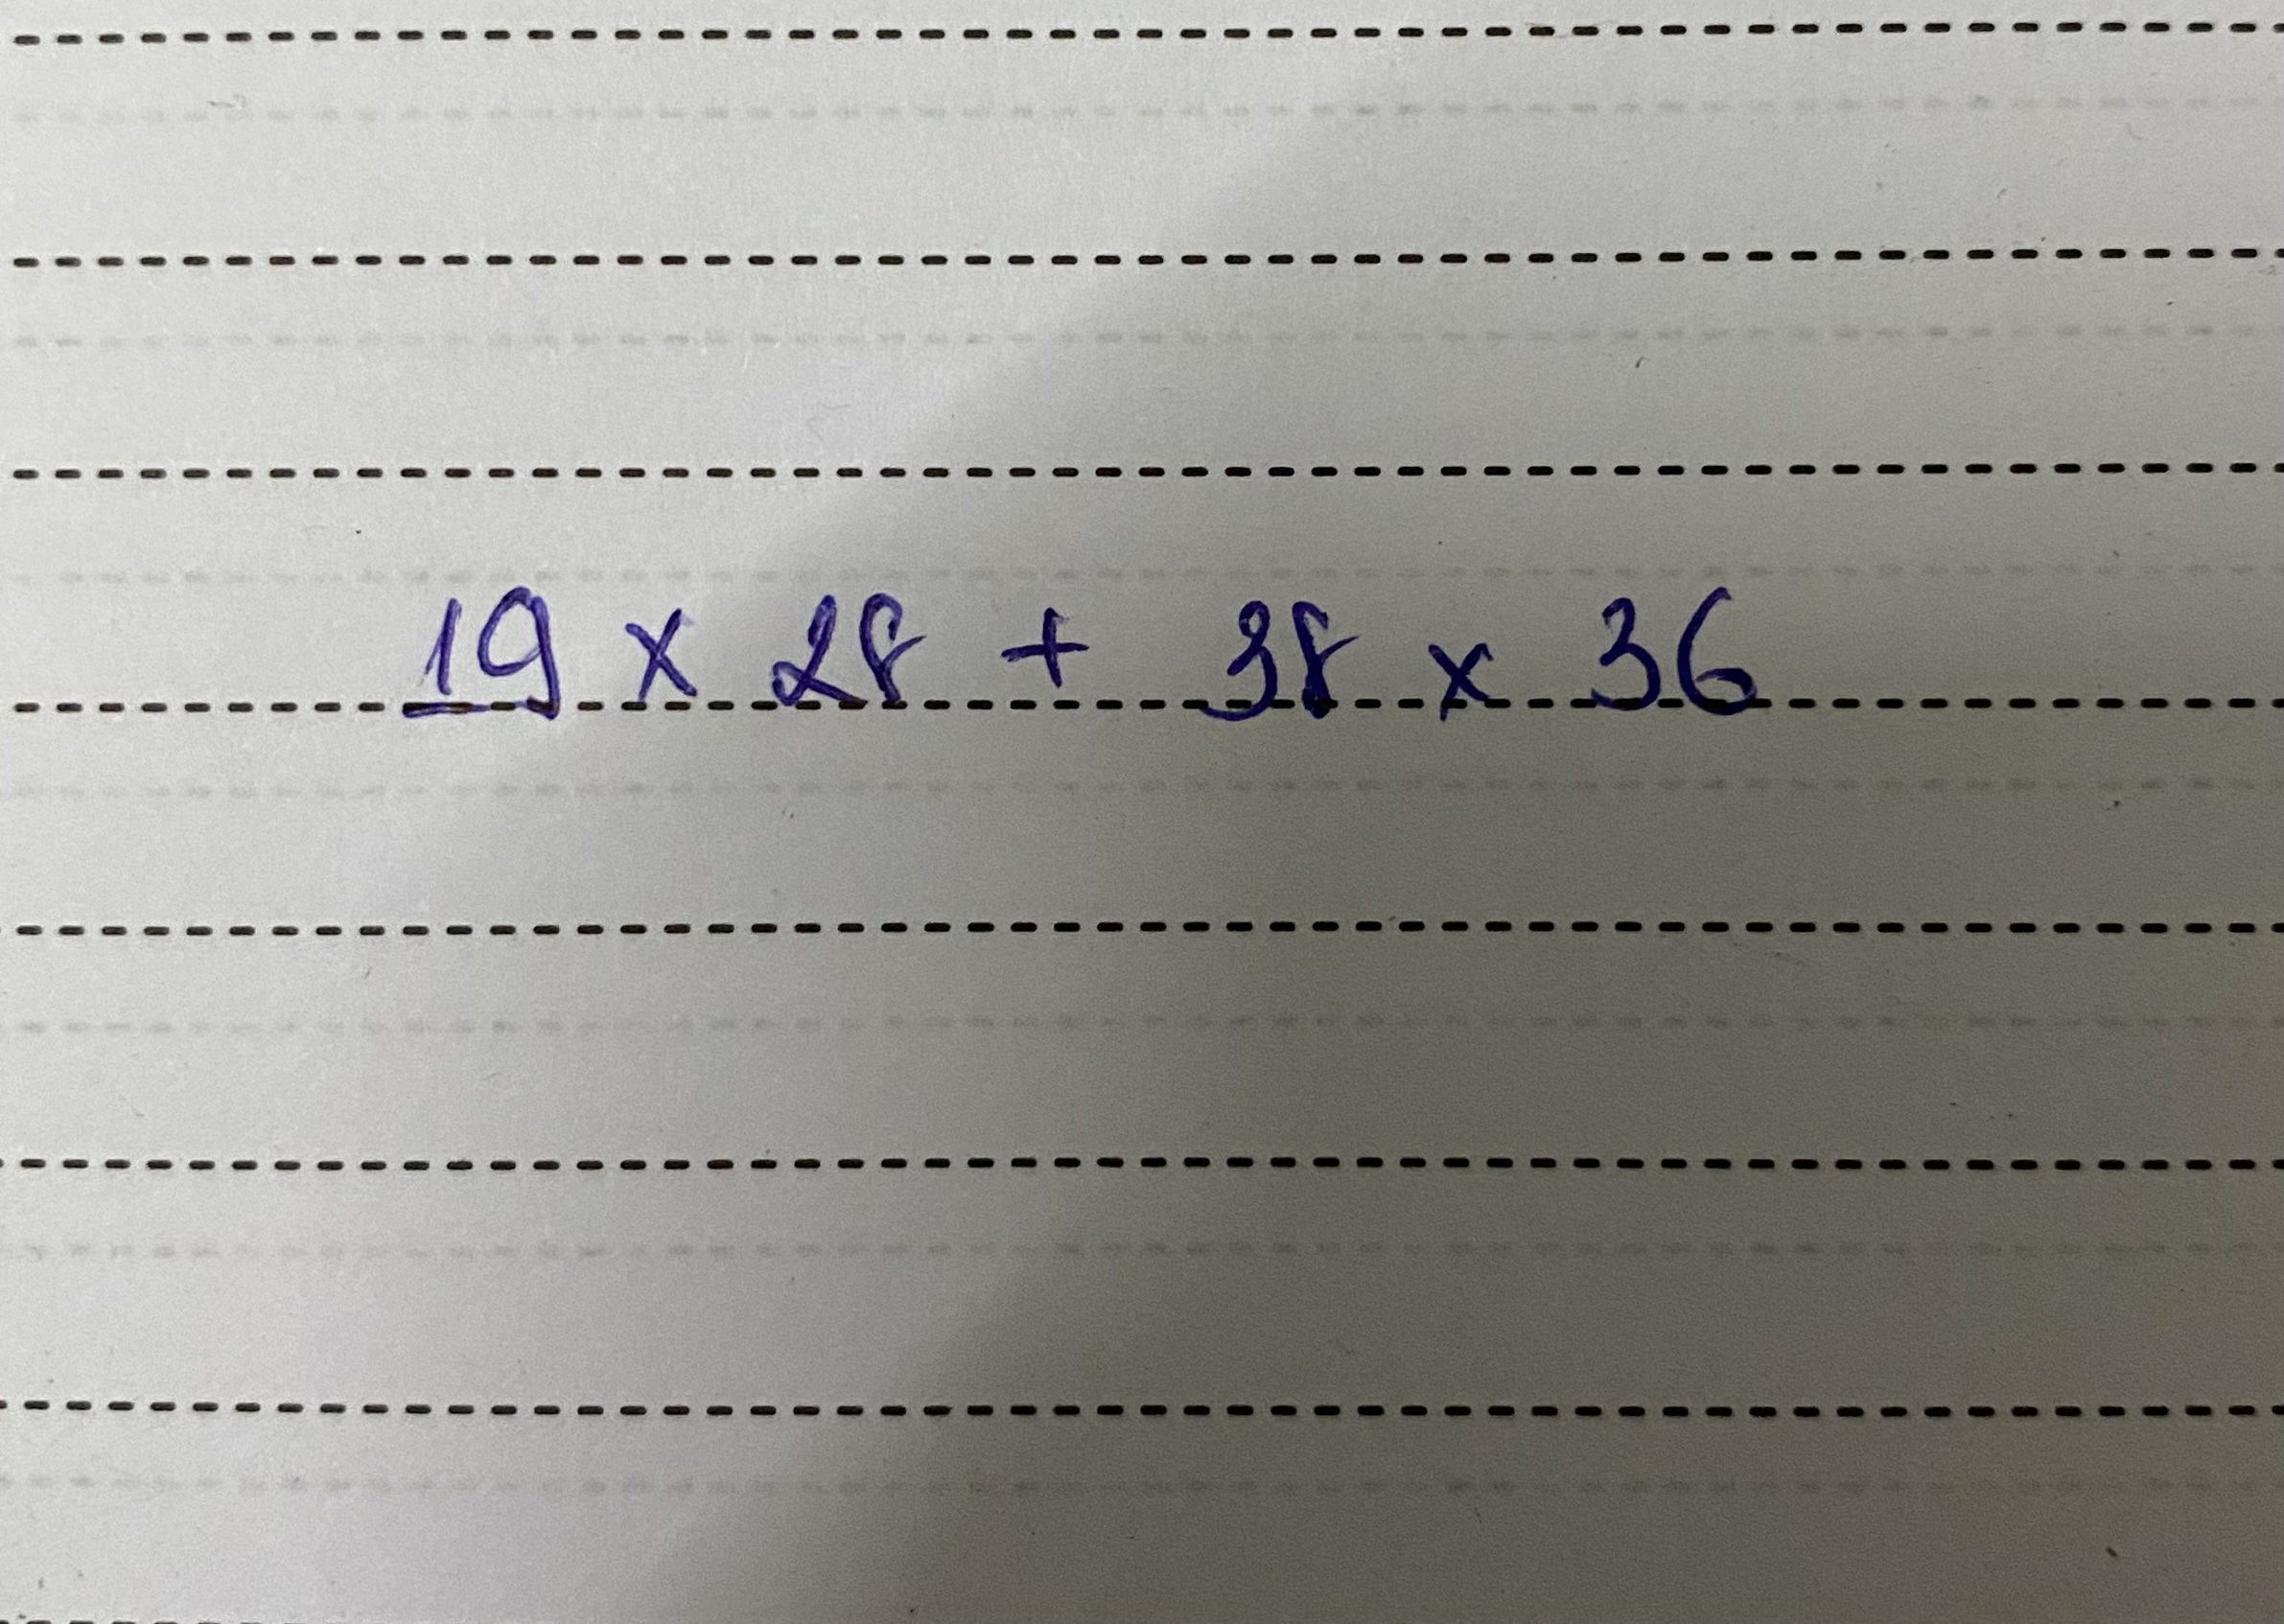 19 x 28 + 38 x 36